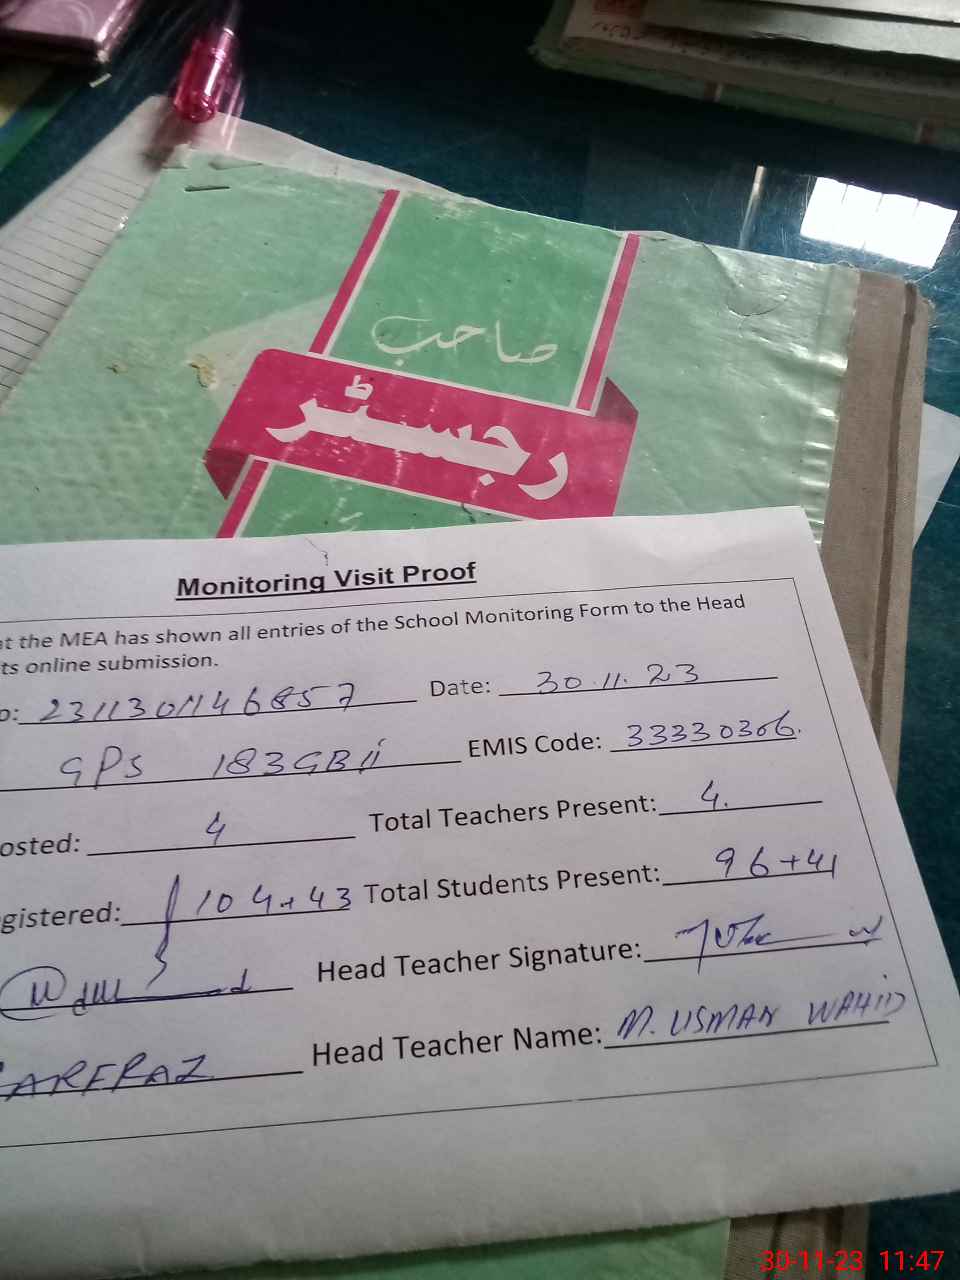 صاحب
رجسٹر
Monitoring Visit Proof
at the MEA has shown all entries of the School Monitoring Form to the Head
ts online submission.
o: 2311301146857 Date: 30.11.23
GPS 183GBii EMIS Code: 33330306.
osted: 4 Total Teachers Present: 4.
gistered: 104+43 Total Students Present: 96+41
Head Teacher Signature:
ARFRAZ Head Teacher Name: M. USMAN WAHID
30-11-23 11:47